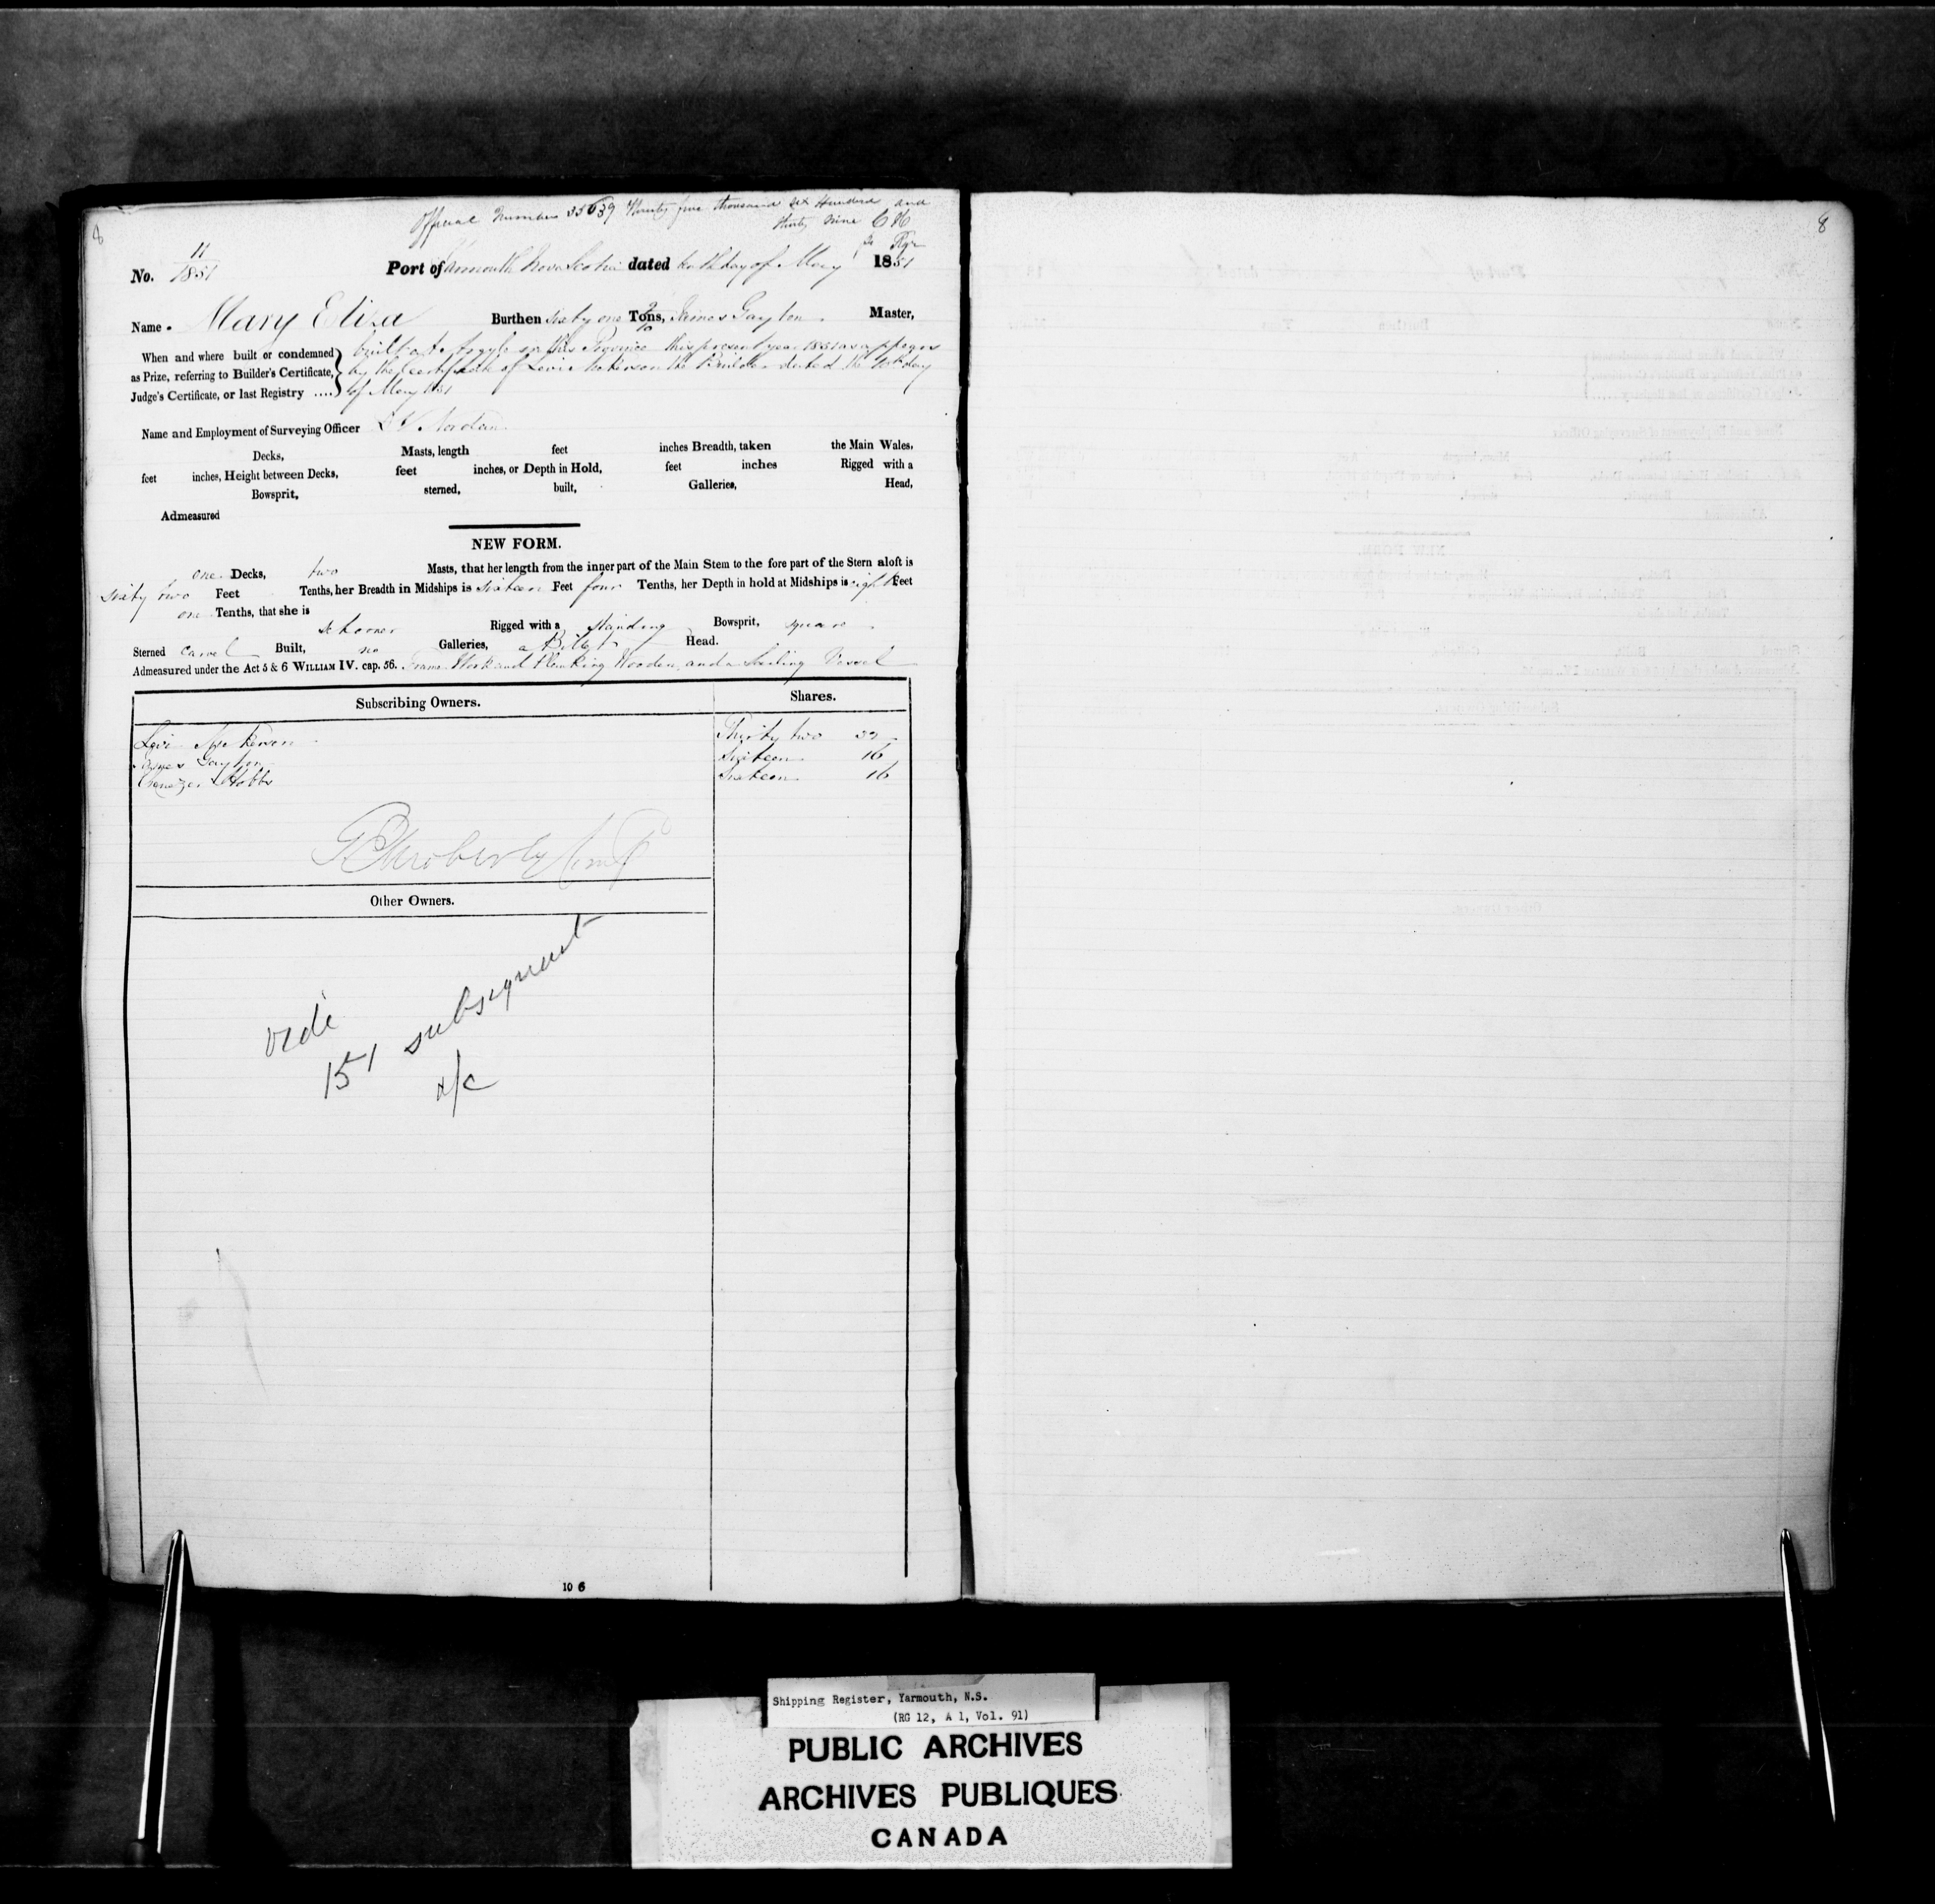 8
Official Number 35639 Thirty five thousand six Hundred and
thirty nine
No. 11/1851 Port of Yarmouth Nova Scotia dated day of May 1851
Name. Mary Eliza Burthen sixty one Tons, James Gayton Master,
When and where built or condemned built at Argyle in this Province this present year 1851 as appears
as Prize, referring to Builder's Certificate, by the Certificate of Levi the Builder dated the day
Judge's Certificate, or last Registry .... of May 1851
Name and Employment of Surveying Officer
Decks, Masts, length feet inches Breadth, taken the Main Wales,
feet inches, Height between Decks, feet inches, or Depth in Hold, feet inches Rigged with a
Bowsprit, sterned, built, Galleries, Head,
Admeasured
NEW FORM.
one Decks, two Masts, that her length from the inner part of the Main Stem to the fore part of the Stern aloft is
sixty two Feet Tenths, her Breadth in Midships is sixteen Feet four Tenths, her Depth in hold at Midships is eight Feet
one Tenths, that she is
Schooner Rigged with a standing Bowsprit, square
Sterned carvel Built, no Galleries, a Billet Head.
Admeasured under the Act 5 & 6 WILLIAM IV. cap. 56. Frame Work and Planking Wooden and a Sailing Vessel
Subscribing Owners. Shares.
Levi Thirty two 32
James Gayton Sixteen 16
Ebenezer Hobbs Sixteen 16
Other Owners.
vide
151 subsequent
a/c
10 6
8
Shipping Register, Yarmouth, N.S.
(RG 12, A 1, Vol. 91)
PUBLIC ARCHIVES
ARCHIVES PUBLIQUES
CANADA